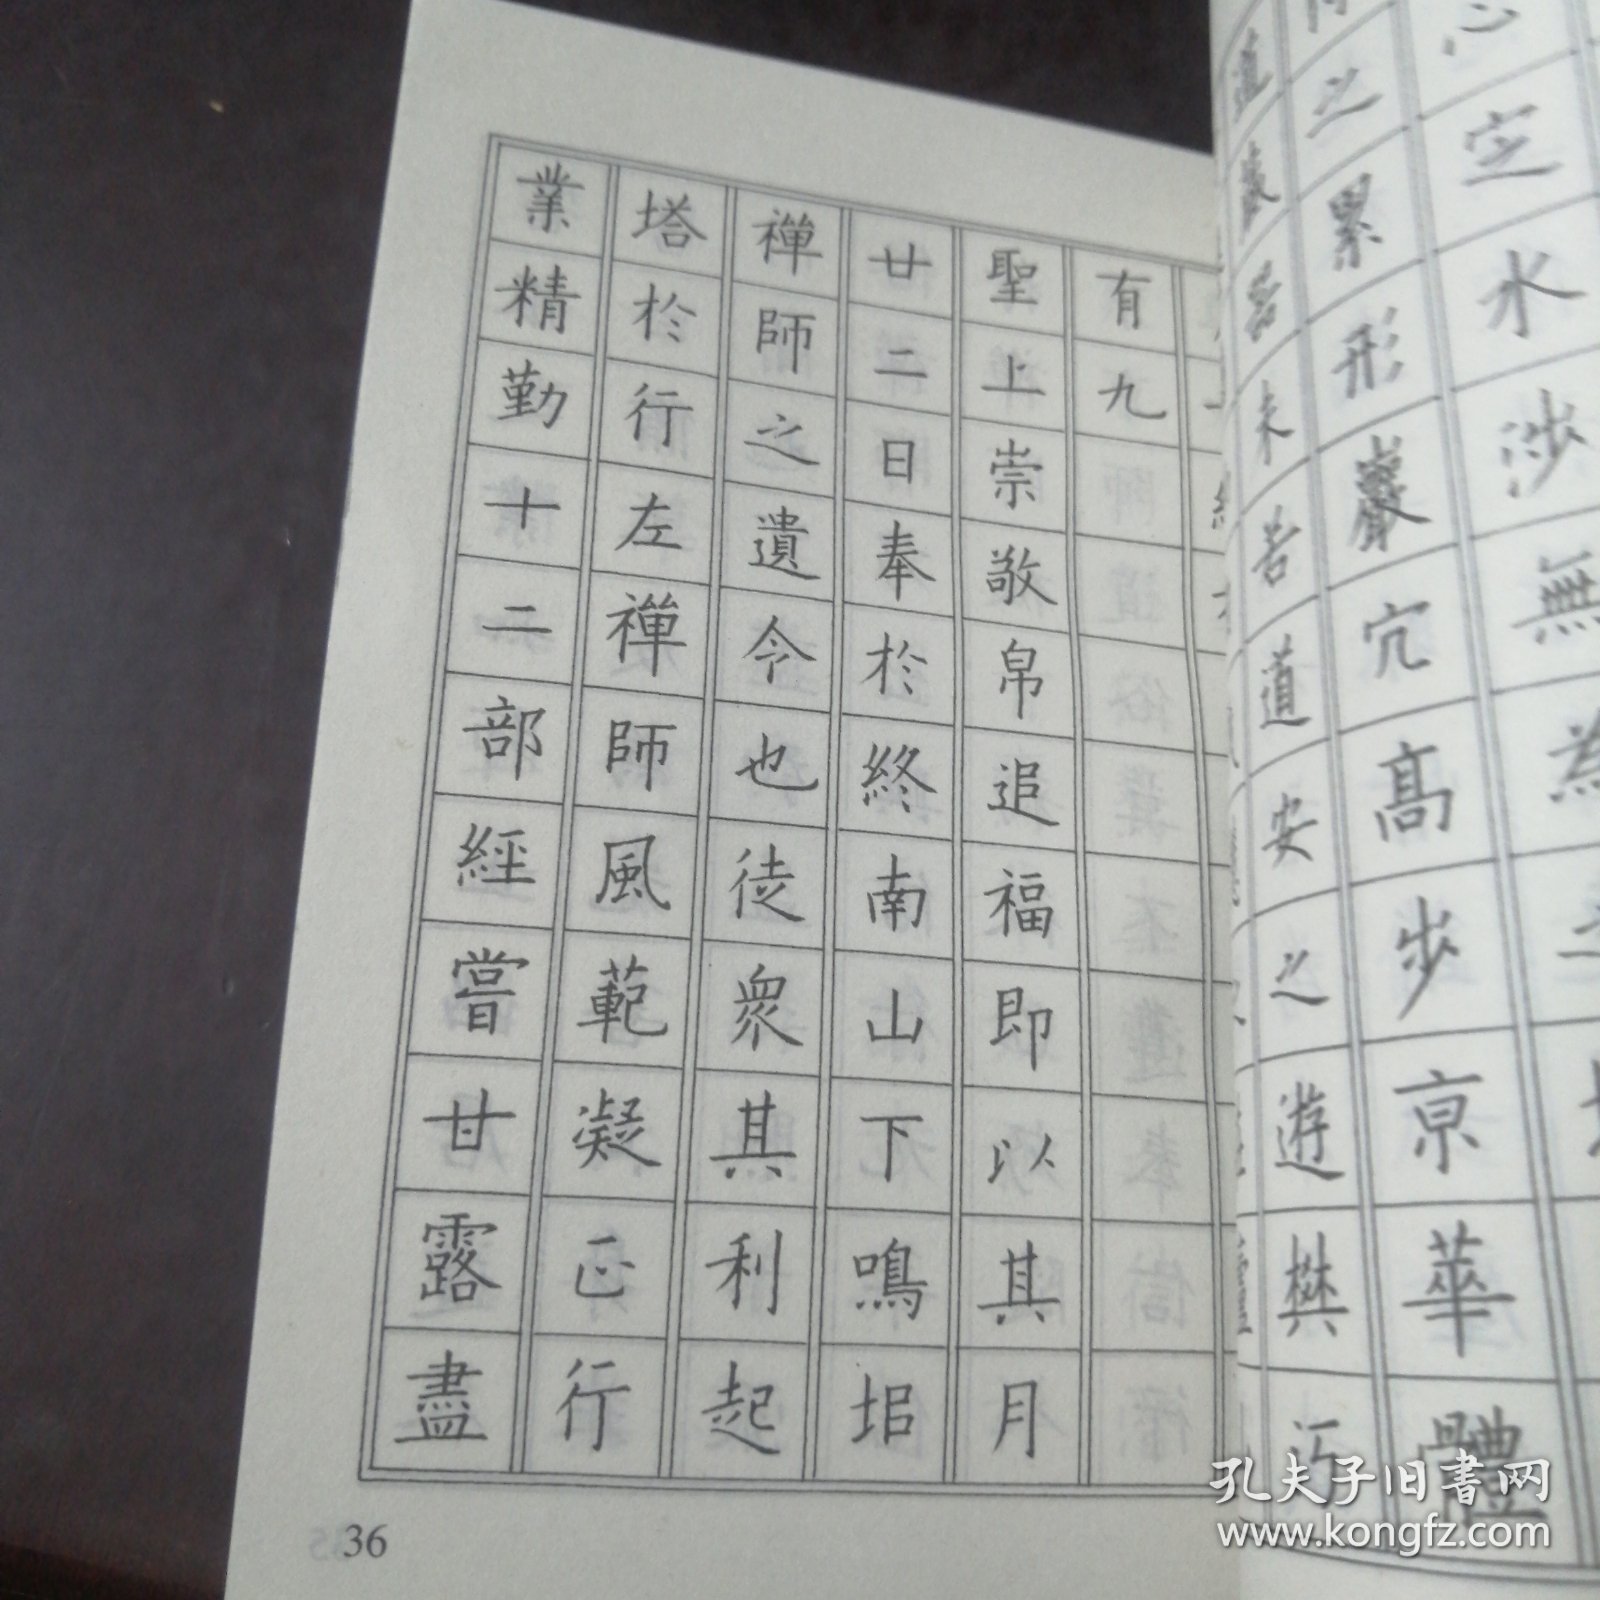 有九
聖上崇敬帛追福即以其月
廿二日奉於終南山下鳴埳
禪師之遺令也徒衆其利起
塔於行左禪師風範凝正行
業精勤十二部經嘗甘露盡
36
定水涉無為之
之累形巖穴高步京華體
道藏
未若道安之遊樊沔
孔夫子旧書网
www.kongfz.com